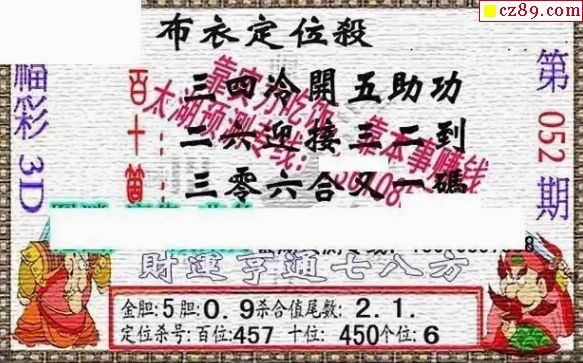 cz89.com
布衣定位殺
福彩3D
第052期
百十個
三四冷開五助功
二六迎接三二到
三零六合又一碼
靠实力吃饭 靠本事赚钱
太湖预测专线:
財運亨通七八方
金胆:5胆:0.9杀合值尾数:2.1.
定位杀号:百位:457 十位:450个位:6